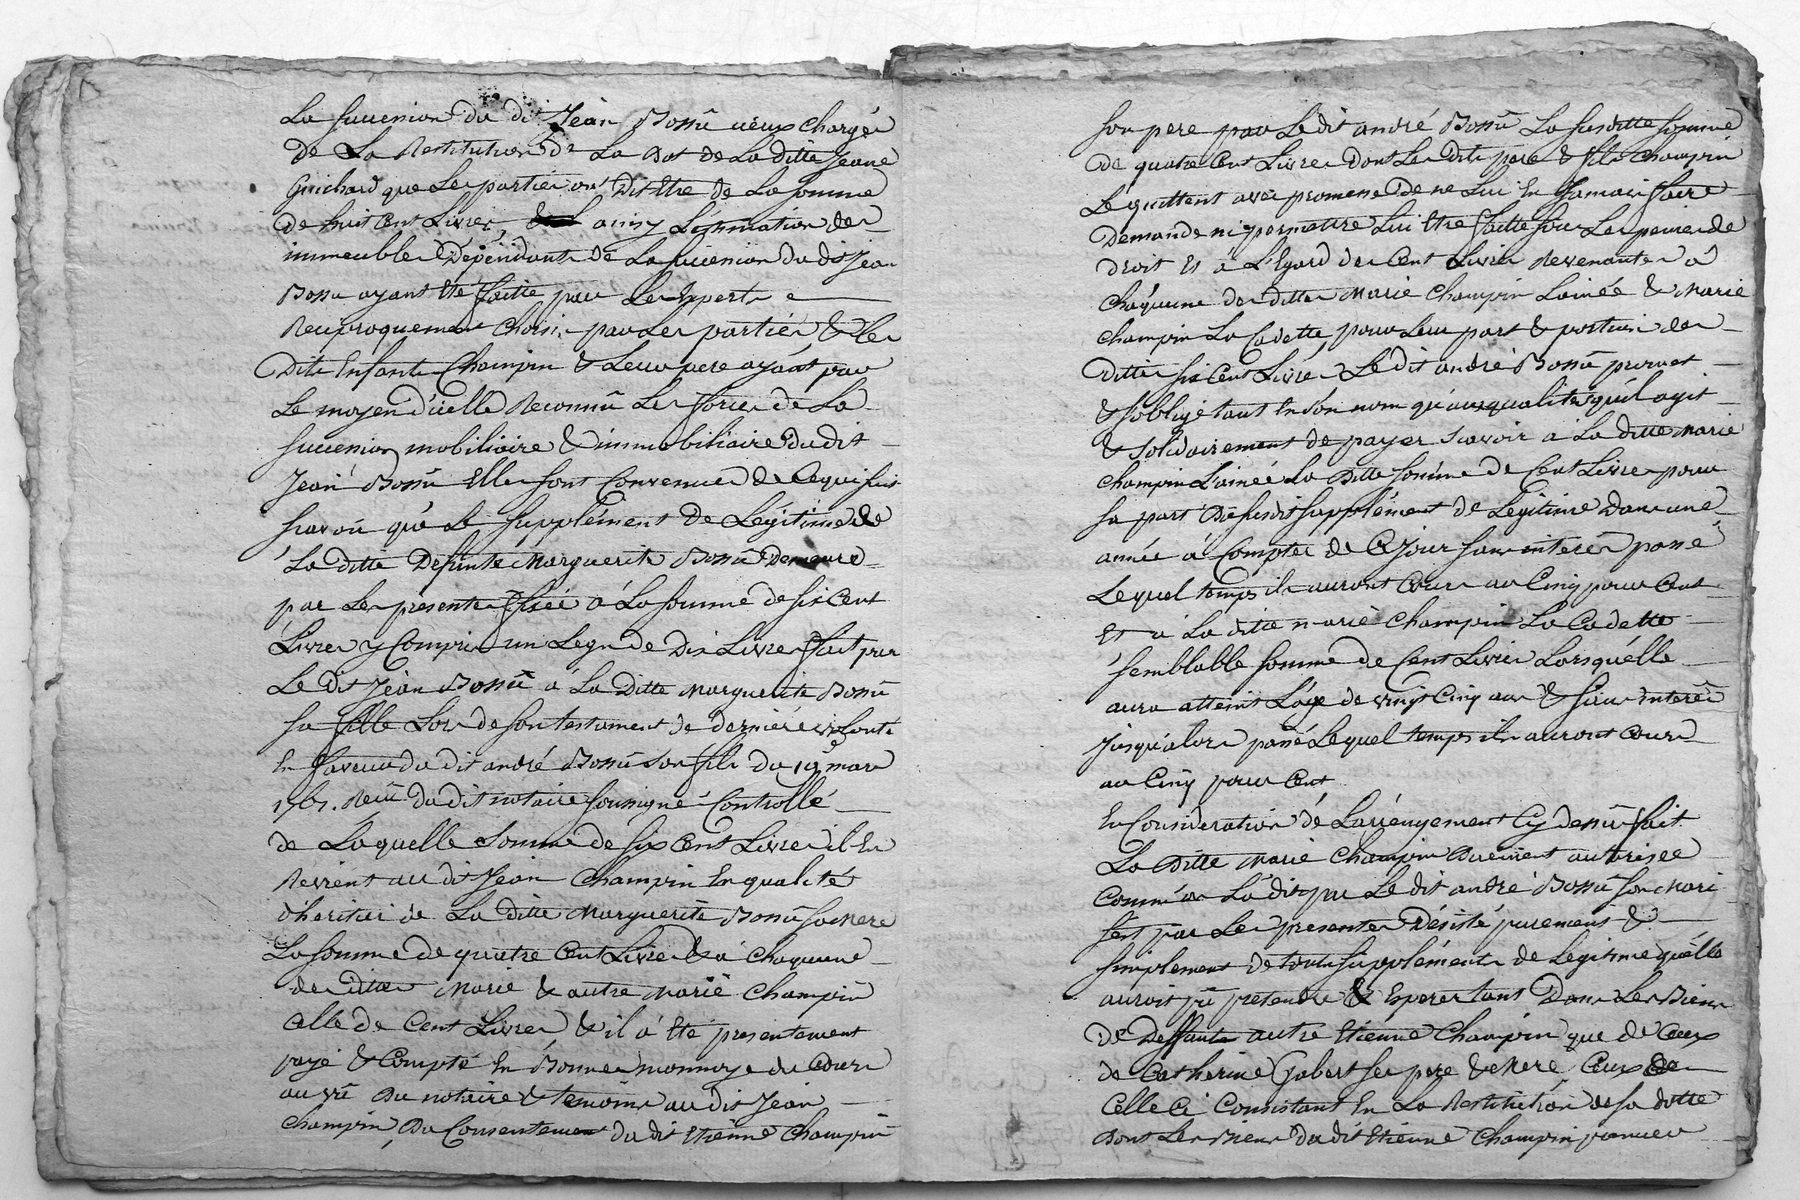 La succession du dit Jean Bossû ceux chargés
de La Restitution de La Dot de La ditte Jeane
Guichard que Les parties ont Dit Etre de La somme
de huit Cent Livres, ainsy L'estimation des
immeubles Dépendants de La succession du dit Jean
Bossu ayant Eté faitte par Les Experts
Reciproquement choisis par Les parties & les
Dits Enfants Champin & Leur pere ayant par
Le moyen d'icelle Reconnû Les forces de La
succession mobiliaire & immobiliaire du dit
Jean Bossû Elles sont Convenues de Ce qui suit
scavoir que Le supplément de Légitime de
La ditte Defunte Marguerite Bossû Demeure
par Les presentes fixée à La somme de six Cent
Livres y Compris un Legs de Dix Livres fait par
Le dit Jean Bossû à La Ditte Marguerite Bossû
sa fille Lors de son testament de derniere volonté
En faveur du dit andré Bossû son fils du 19e mars
1761. Recû du dit notaire soussigné Controllé
de Laquelle somme de six Cent Livres il En
Revient au dit Jean Champin En qualité
d'heritier de La ditte Marguerite Bossû sa Mere
La somme de quatre Cent Livres & à chaqueune
des dittes Marie & autre Marie Champin
Celle de Cent Livres & il à Eté presentement
payé & Compté En Bonnes monnoye du Cours
au vû Du notaire & temoins au dit Jean
Champin, Du Consentement du dit Etienne Champin
son pere par Le dit andré Bossû La susditte somme
de quatre Cent Livres dont Les Dits pere & fils Champin
Le quittent avec promesse De ne Lui En Jamais faire
Demande ni permettre Lui Etre faitte sous Les peines de
droit Et à L'Egard des Cent Livres Revenantes à
Chaqueune des dittes Marie Champin L'ainée & Marie
Champin La Cadette, pour Leur part & portion des
Dittes six Cent Livres Le dit andré Bossû promet
& s'oblige tant En son nom qu'auxqualités qu'il agit
& solidairement de payer scavoir à La ditte Marie
Champin L'ainée La Ditte somme de Cent Livres pour
sa part Du susdit supplément de Légitime Dans une
année à Compter de Ce Jour sans interets passé
Lequel temps ils auront Cours au Cinq pour Cent
Et à La ditte Marie Champin La Cadette
semblable somme de Cent Livres Lorsqu'elle
aura atteint L'age de vingt Cinq ans & sans interets
Jusqu'alors passé Lequel temps ils auront Cours
au Cinq pour Cent
En Consideration de L'arrengement Cy dessû fait
La Ditte Marie Champin Duement autorisée
Comme on L'a dit par Le dit andré Bossû son Mari
s'est par Les presentes Désisté purement &
simplement de touts suppléments de Légitime qu'elle
auroit pû pretendre & Esperer tant Dans Les Biens
De Deffunts autre Etienne Champin que de Ceux
de Catherine Jobert ses pere & Mere, Ceux de
Celle Ci Consistant En La Restitution de sa dotte
Dont Les Biens du dit Etienne Champin